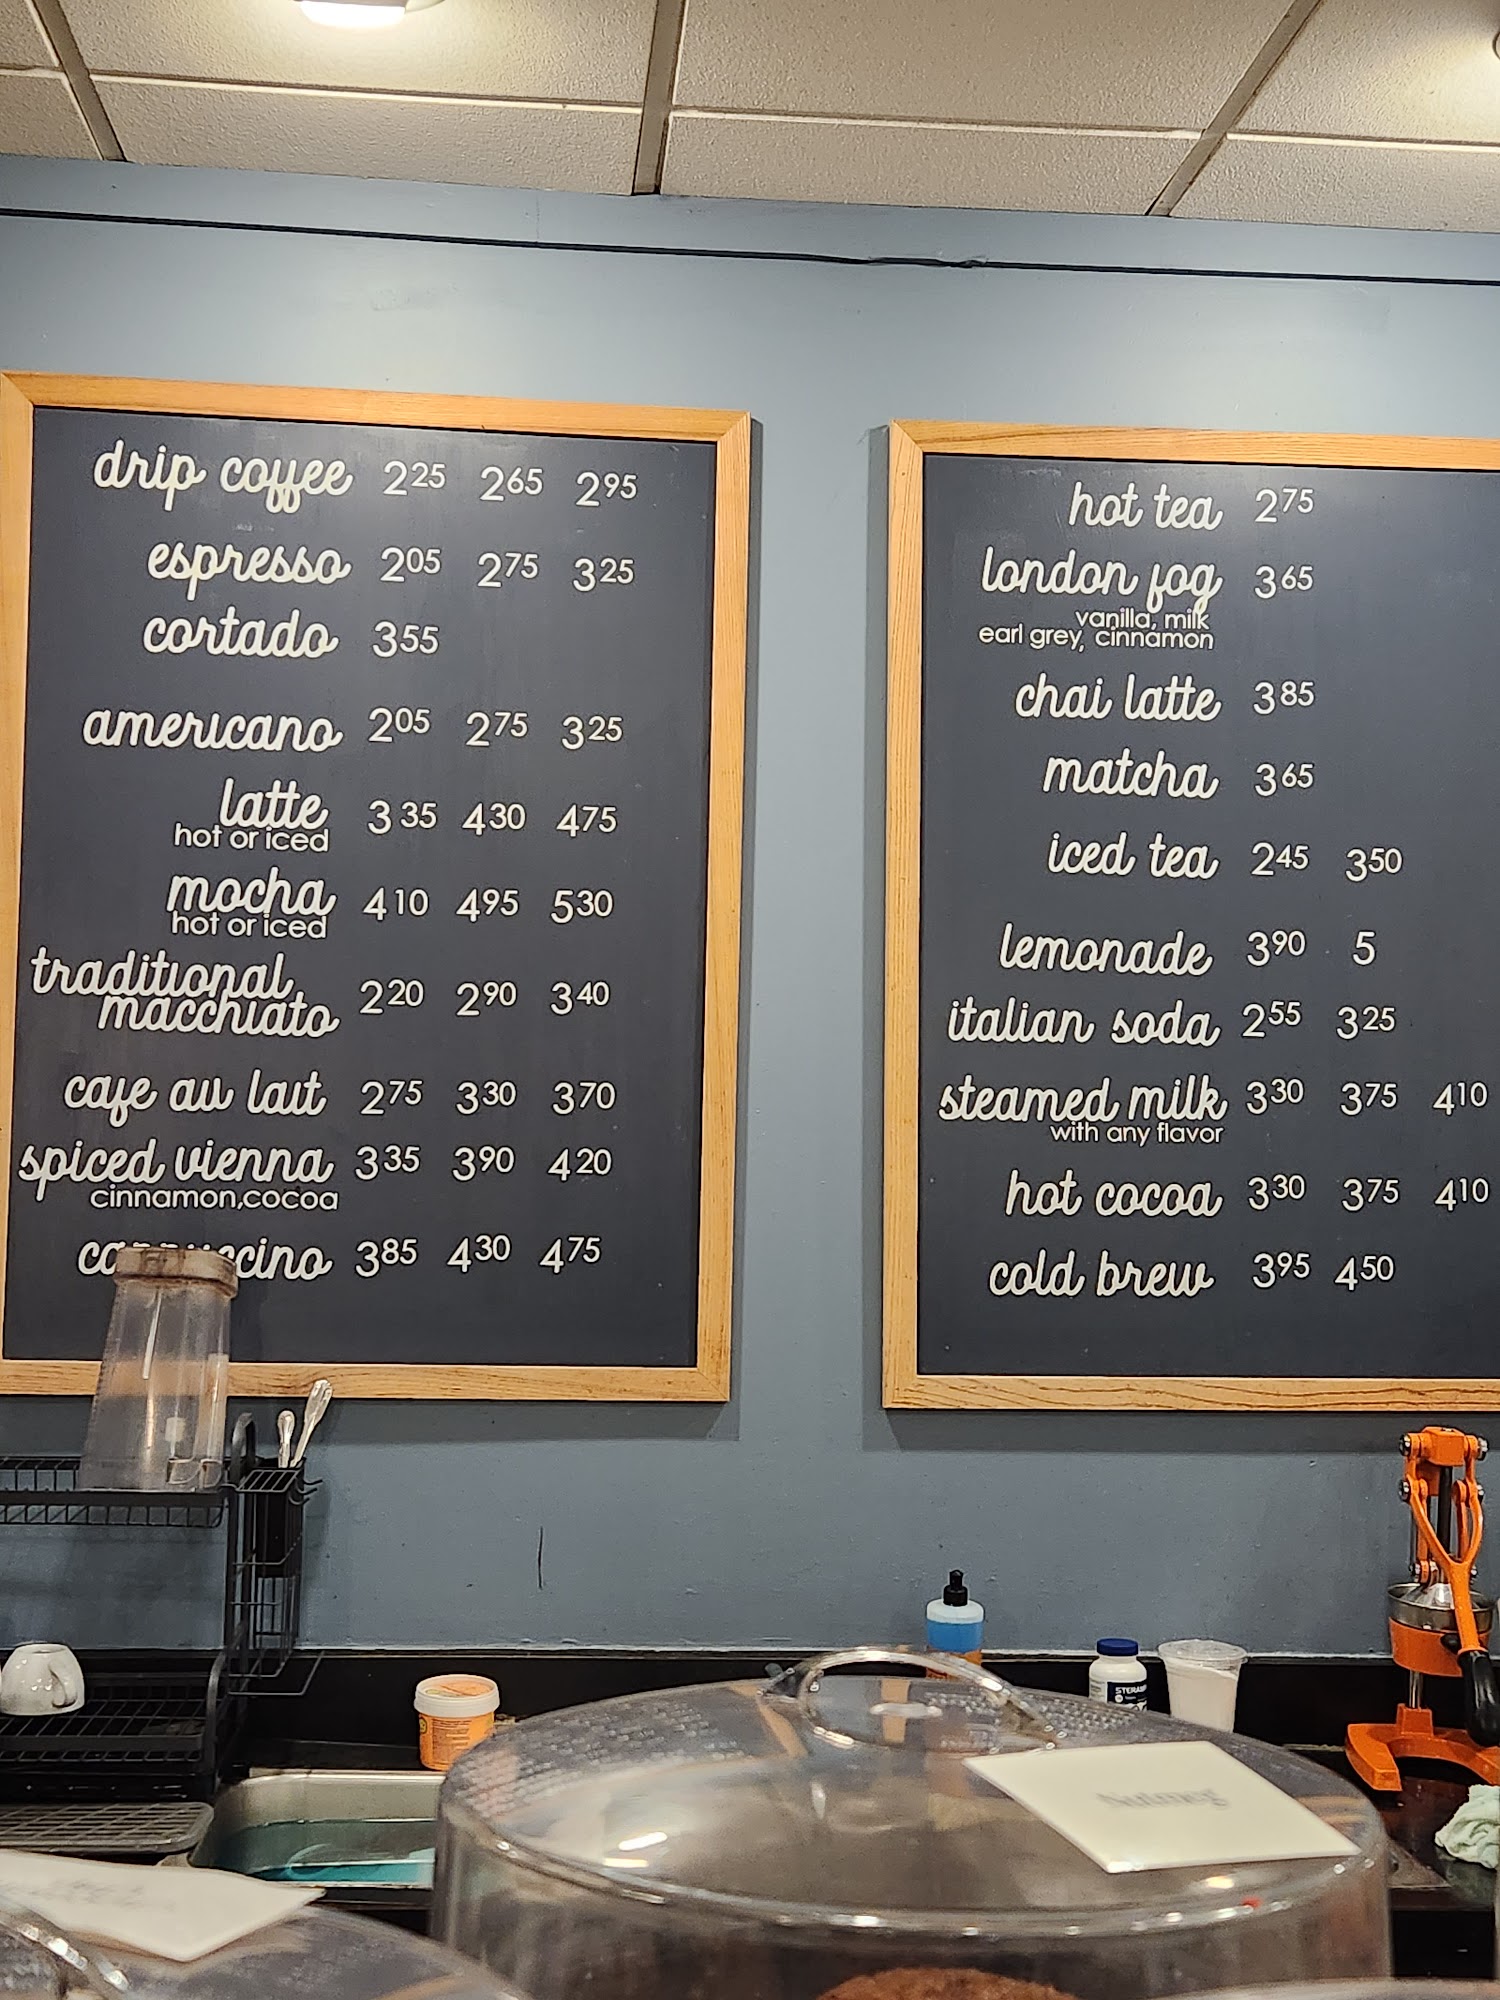 drip coffee 2 25 2 65 2 95
espresso 2 05 2 75 3 25
cortado 3 55
americano 2 05 2 75 3 25
latte 3 35 4 30 4 75
hot or iced
mocha 4 10 4 95 5 30
hot or iced
traditional
macchiato 2 20 2 90 3 40
cafe au lait 2 75 3 30 3 70
spiced vienna 3 35 3 90 4 20
cinnamon,cocoa
cappuccino 3 85 4 30 4 75
hot tea 2 75
london fog 3 65
vanilla, milk
earl grey, cinnamon
chai latte 3 85
matcha 3 65
iced tea 2 45 3 50
lemonade 3 90 5
italian soda 2 55 3 25
steamed milk 3 30 3 75 4 10
with any flavor
hot cocoa 3 30 3 75 4 10
cold brew 3 95 4 50
Nutmeg